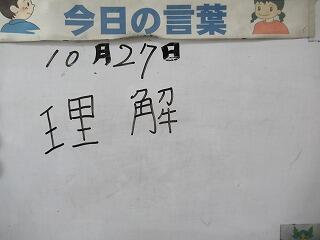 今日の言葉
10月27日
理解